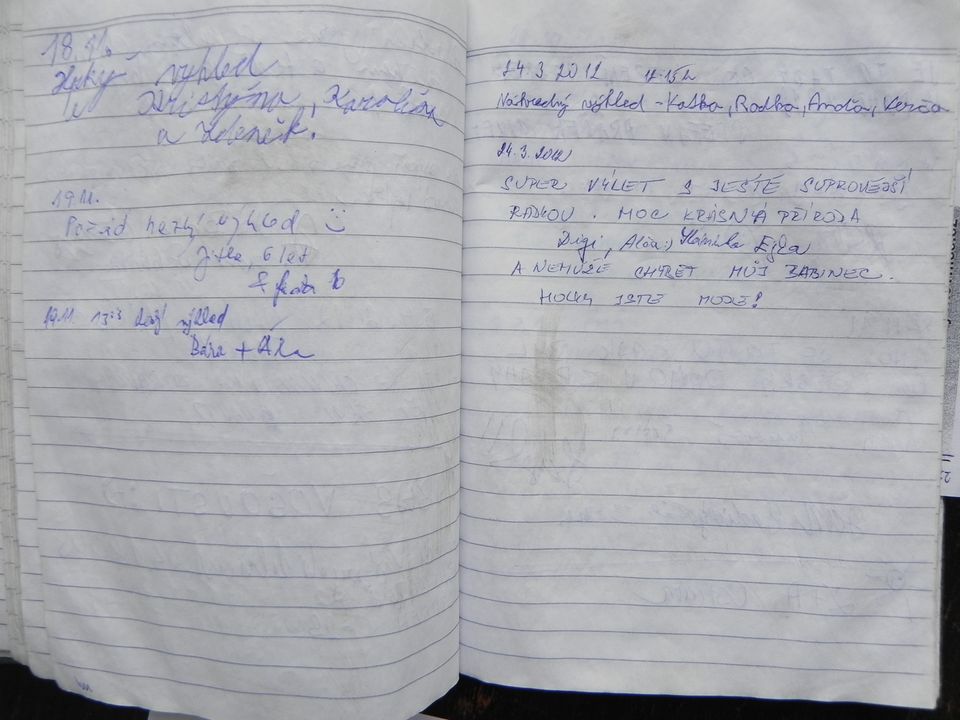 18.11.
Hezký výhled
Kristýna, Karolína
a Zdeněk.
19.11.
Pořád hezký výhled
Jitka, 6 let
19.11. 13:3 výhled
Bára + Ála
24.3 2012 17.15h
Náhradný výhled - Katka, Radka, Anďa, Verča
24.3.2012
SUPER VÝLET S JEŠTĚ SUPROVĚJŠÍ
RADKOU. MOC KRÁSNÁ PŘÍRODA
Digi, Alča :) Ejža
A NEMŮŽE CHYBĚT MŮJ BABINEC.
HOLKY JSTE MOJE!